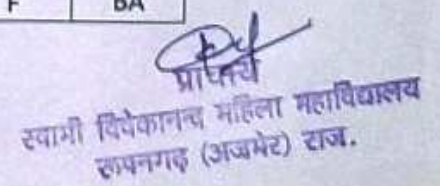 F BA
प्राचार्य
स्वामी विवेकानन्द महिला महाविद्यालय
रूपनगढ़ (अजमेर) राज.